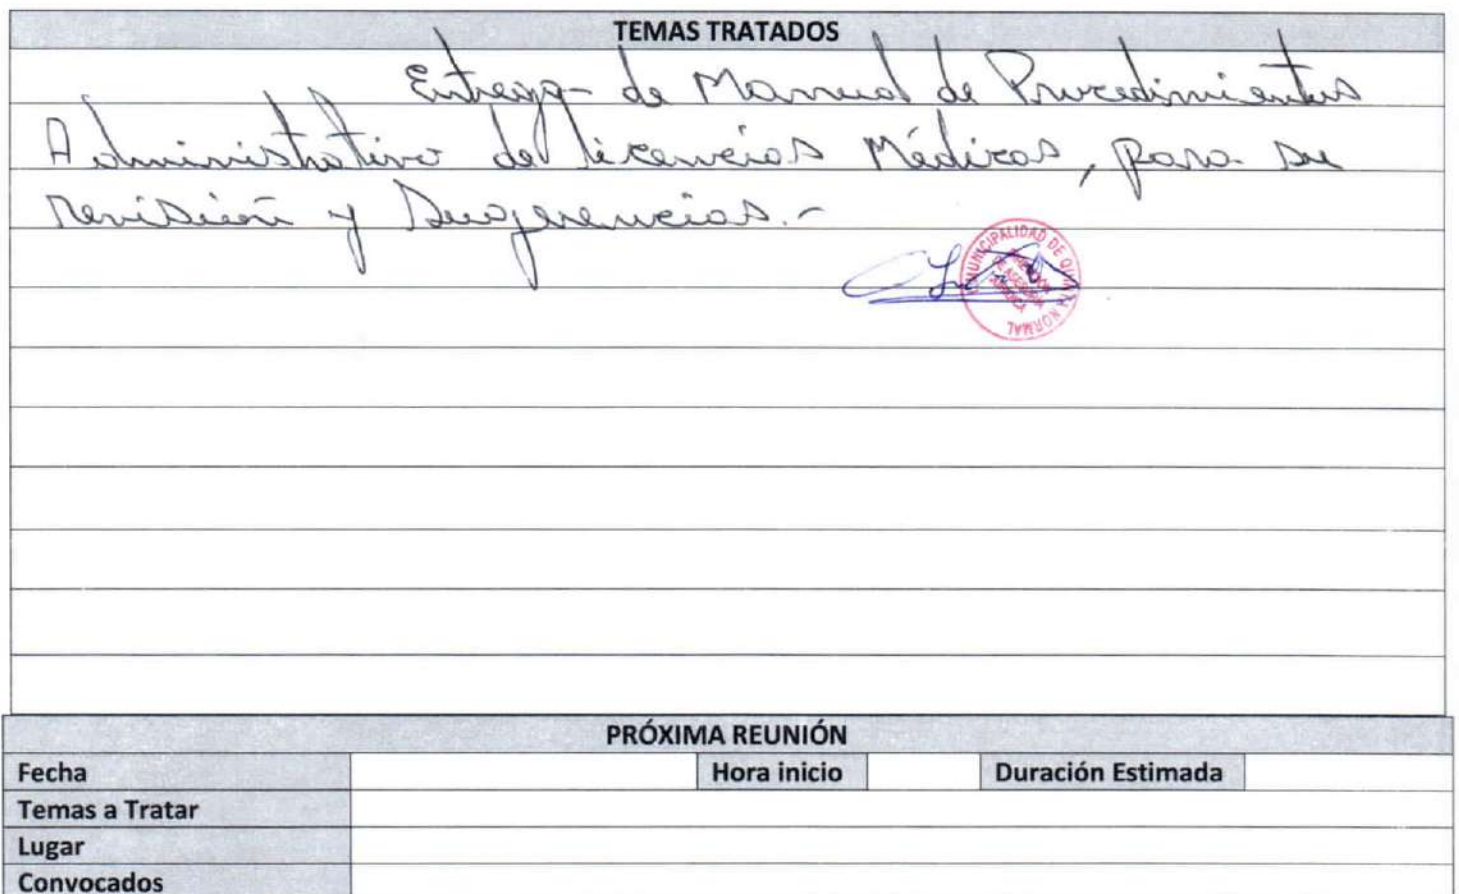 TEMAS TRATADOS
Entrega de Manual de Procedimientos
Administrativo de licencias Médicas, para su
revisión y Sugerencias.-
MUNICIPALIDAD DE QUINTA NORMAL
DIRECCIÓN
DE ASESORIA
JURIDICA
PRÓXIMA REUNIÓN
Fecha Hora inicio Duración Estimada
Temas a Tratar
Lugar
Convocados